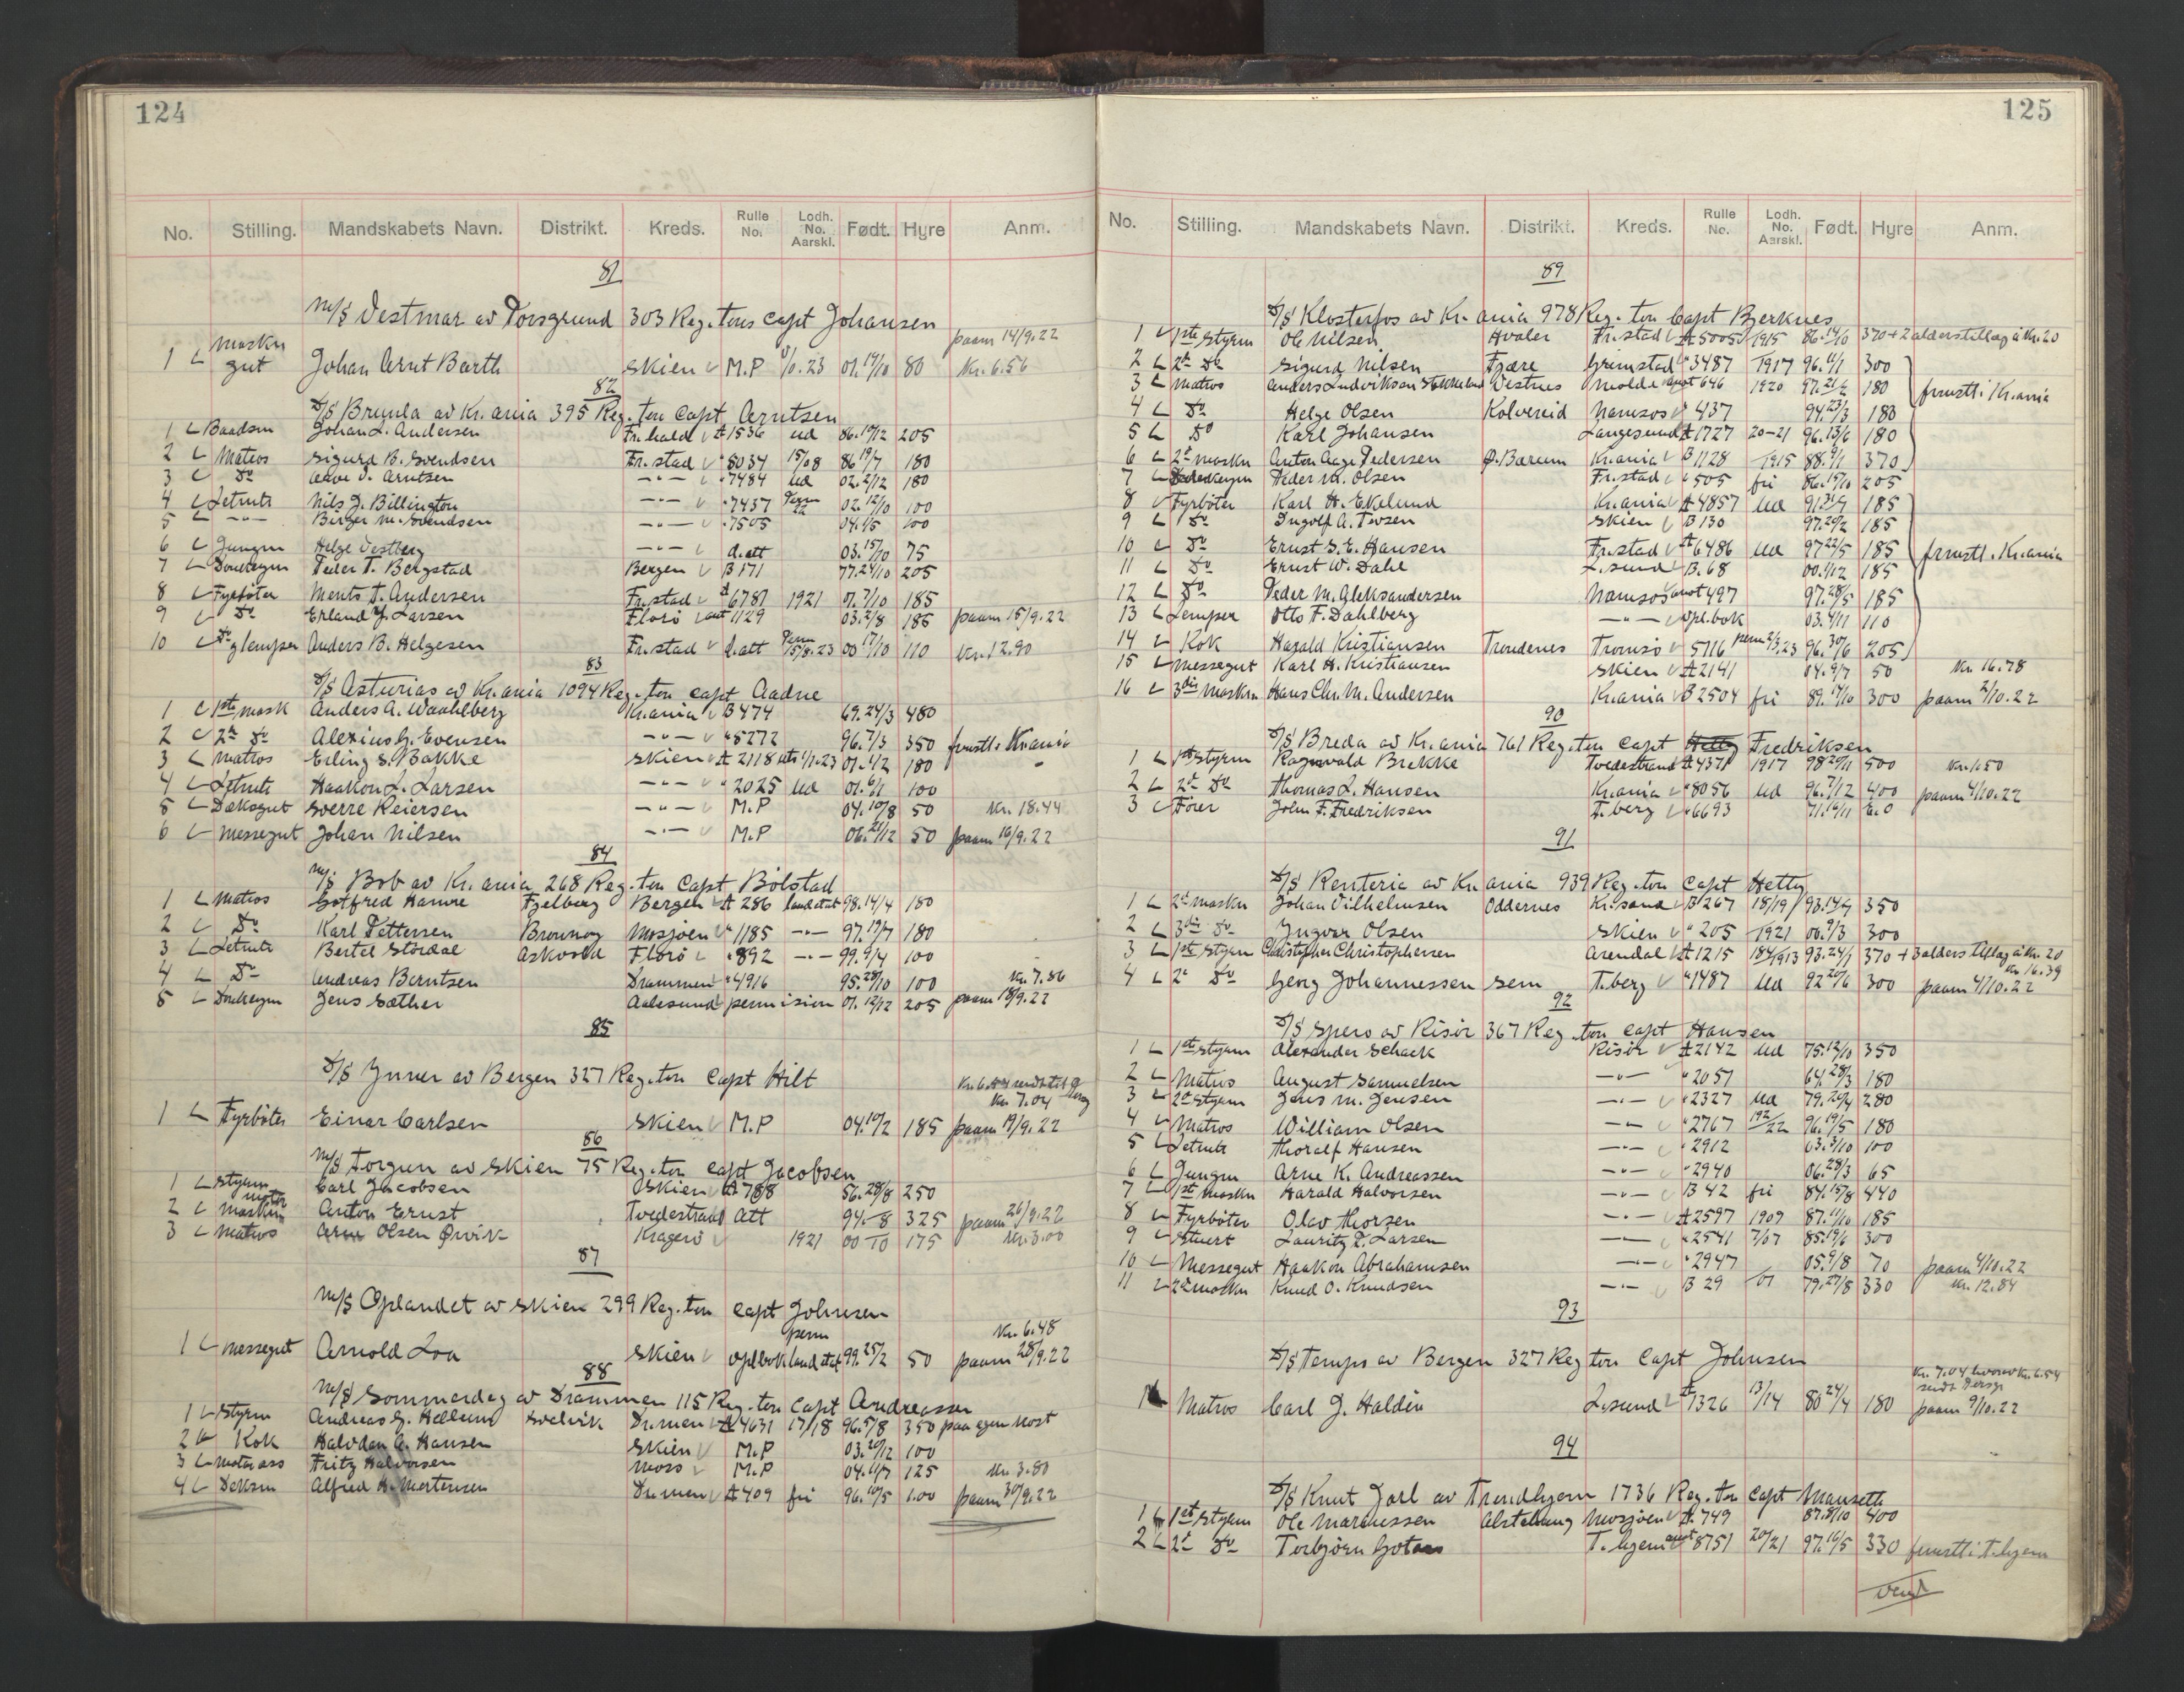 124
No. Stilling. Mandskabets Navn. Distrikt. Kreds. Rulle No. Lodh. No. Aarskl. Født. Hyre Anm.
81
M/S Vestmar av Porsgrund 303 Reg. tons Capt Johansen
1 Maskn gut Johan Arnt Barth Skien M.P 01.19/10 80 paam 14/9.22 Kr. 6.56
82
D/S Brynla av Kr.ania 395 Reg. ton Capt Arntsen
1 Baadsm Johan L. Andersen Fr.hald A 1536 ud 86.19/12 205
2 Matros Sigurd B. Svendsen Fr.stad " 8034 15/08 86 19/7 180
3 Do Aave I. Arntsen -"- " 7484 ud 02.2/12 180
4 Letmtr Nils J. Billington -"- " 7437 Perm 22 02.12/10 100
5 -"- Birger M. Svendsen -"- " 7505 04.1/5 100
6 Jungm Helge Vestberg -"- d.att 03.15/10 75
7 Donkeym Peder T. Bergstad Bergen B 171 77.24/10 205
8 Fyrbøter Ments T. Andersen Fr.stad A 6781 1921 01.7/10 185
9 Do Erland J. Larsen Florø ant 1129 03.2/8 185 paam 15/9.22
10 Do g lemper Anders B. Helgesen Fr.stad d.att Perm 15/8.23 00 17/10 110 Kr. 12.90
83
D/S Asturias av Kr.ania 1094 Reg. ton Capt Aadne
1 1ste mask Anders A. Waahlberg Kr.ania B 474 69.24/3 480
2 2n Do Alexius G. Evensen -"- " 5272 96.7/3 350 frmstl. Kr.ania
3 Matros Erling S. Bakke Skien A 2118 uts 1/1.23 01.4/2 180
4 Letmtr Haakon L. Larsen -"- " 2025 ud 01.6/1 100
5 Dæksgut Sverre Reiersen -"- M.P 04.10/8 50 Kr. 18.44
6 Messegut Johan Nilsen -"- M.P 06.21/12 50 paam 16/9.22
84
M/S Bob av Kr.ania 268 Reg. ton Capt Bolstad
1 Matros Gotfred Hamre Fjelberg Bergen A 286 landstat 98.14/4 180
2 Do Karl Pettersen Brønnøy Mosjøen " 1185 -"- 97.19/7 180
3 Letmtr Bertel Stordal Askvoll Florø " 892 -"- 99.9/4 100
4 Do Andreas Berntsen Drammen " 4916 95.28/10 100 Kr. 7.86
5 Donkeym Jens Sæther Aalesund permision 01.12/12 205 paam 18/9.22
85
D/S Ymer av Bergen 327 Reg. ton Capt Hilt
Kr. 7.04
1 Fyrbøter Einar Carlsen Skien M.P 04.10/2 185 paam 19/9.22
86
M/S Torgun av Skien 75 Reg. ton Capt Jacobsen
1 Styrm Carl Jacobsen Skien A 708 56.28/8 250
2 motor maskin Anton Ernst Tvedestrand Att 94.-8 325 paam 26/9.22
3 Matros Arne Olsen Qvirk Kragerø 1921 00 10 175 Kr. 3.00
87
M/S Oplandet av Skien 299 Reg. ton Capt Johnsen
1 Messegut Arnold Loa Skien opl.bok perm landstat 99.25/2 50 Kr. 6.48 paam 28/9.22
88
M/S Sommerdag av Drammen 115 Reg. ton Capt Andreassen
1 Styrm Andreas G. Hellum Svelvik Dr.men A 4631 17/18 96.5/8 350 paa egen kost
2 Kok Halvdan A. Hansen Skien M.P 03.20/12 100
3 Motorass Fritz Halvorsen Moss M.P 04.11/7 125 Kr. 3.80
4 Deksm Alfred H. Mortensen Dr.men A 409 fri 96.10/5 100 paam 30/9.22
125
No. Stilling. Mandskabets Navn. Distrikt. Kreds. Rulle No. Lodh. No. Aarskl. Født. Hyre Anm.
89
D/S Klosterfos av Kr.ania 978 Reg. ton Capt Bjerknes
1 1ste Styrm Ole Nilsen Hvaler Fr.stad A 5005 1915 86.14/10 370 + 2 alderstillæg á Kr. 20
2 2n Do Sigurd Nilsen Fjære Grimstad " 3487 1917 96.11/1 300
3 Matros Anders Ludvikson Stokkeland Vestnes Molde anot 646 1920 97.21/2 180 frmstl. i Kr.ania
4 Do Helge Olsen Kolvereid Namsos " 437 94 23/3 180
5 Do Karl Johansen Langesund A 1727 20-21 96.13/6 180
6 2n maskn Anton Aage Pedersen Ø. Bærum Kr.ania B 1128 1915 88.9/1 370
7 Donkeym Peder M. Olsen Fr.stad " 505 fri 86.15/10 205
8 Fyrbøter Karl H. Ekelund Kr.ania A 4857 ud 91.31/7 185
9 Do Ingolf A. Iversen Skien B 130 97.20/2 185
10 Do Ernst S.E. Hansen Fr.stad A 6486 ud 97 22/5 185 frmstl. Kr.ania
11 Do Ernst W. Dahl L.sund B. 68 00.1/12 185
12 Do Peder M. Aleksandersen Namsos anot 497 97.28/5 185
13 Lemper Otto F. Dahlberg -"- opl.bok 03.4/11 110
14 Kok Harald Kristiansen Trondenes Tromsø " 5716 perm 2/3.23 96.30/6 205
15 Messegut Karl H. Kristiansen Skien A 2141 04.9/7 50 Kr. 16.78
16 3die maskn Hans Chr. M. Andersen Kr.ania B 2504 fri 89.17/10 300 paam 2/10.22
90
D/S Breda av Kr.ania 761 Reg. ton Capt Hetty Fredriksen
1 1ste Styrm Ragnvald Brekke Tvedestrand A 4371 1917 98 20/11 500 Kr. 1.50
2 2n Do Thomas L. Hansen Kr.ania " 8056 ud 96.7/12 400 paam 4/10.22
3 Fører John F. Fredriksen T.berg " 6693 71.16/11 E.O
91
D/S Renteria av Kr.ania 939 Reg. ton Capt Hetty
1 2n maskn Johan Vilhelmsen Oddernes Kr.sand B 267 18/19 93.14/7 350
2 3die Do Yngvar Olsen Skien " 205 1921 00.9/3 300
3 1ste Styrm Christopher Christophersen Arendal A 1215 184/1913 93.24/1 370 + 3 alders tillæg á Kr. 20
4 2n Do Georg Johannessen Sem T.berg " 1487 ud 92 20/6 300 Kr. 16.39 paam 4/10.22
92
D/S Spero av Risør 367 Reg. ton Capt Hansen
1 1ste Styrm Alexander Schack Risør A 2142 ud 75.12/10 350
2 Matros August Samuelsen -"- " 2051 64.28/3 180
3 2n Styrm Jens M. Jensen -"- " 2327 ud 79.20/4 280
4 Matros William Olsen -"- " 2767 192/22 96.19/5 180
5 Letmtr Thoralf Hansen -"- " 2912 03.3/10 100
6 Jungm Arne K. Andreassen -"- " 2940 06.28/3 65
7 1ste maskn Harald Halvorsen -"- B 42 fri 84.15/8 440
8 Fyrbøter Olav Thorsen -"- A 2597 1909 87.11/10 185
9 Stuert Lauritz P. Larsen -"- " 2541 7/07 85.19/6 300
10 Messegut Haakon Abrahamsen -"- " 2947 05.9/8 70 paam 4/10.22
11 2n maskn Knud O. Knudsen -"- B 29 01 79.27/8 330 Kr. 12.84
93
D/S Tempo av Bergen 327 Reg ton Capt Johnsen
Kr. 7.04 hvorav Kr. 6.54
1 Matros Carl J. Haldin L.sund A 1326 13/14 80 24/4 180 paam 9/10.22
94
D/S Knut Jarl av Trondhjem 1736 Reg. ton Capt Mauseth
1 1ste Styrm Ole Marcussen Alstahaug Mosjøen A. 749 87.8/10 400
2 2n Do Torbjørn Gotaas T.hjem anot 8751 20/21 97.16/5 330 frmstl i T.hjem
Vend